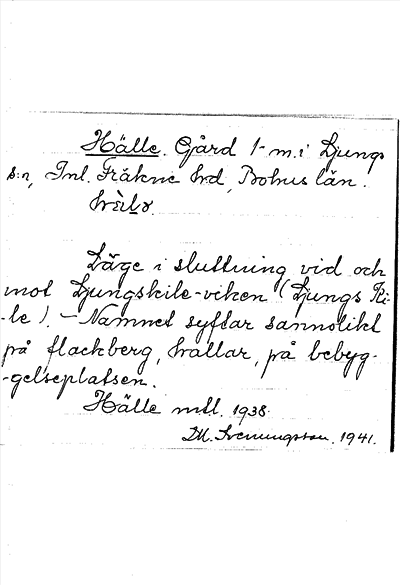 Hälle. Gård 1 m. i Ljungs
s:n, Inl. Fräkne hd, Bohus län.
Läge i sluttning vid och
mot Ljungskile-viken (Ljungs Ki-
-le). – Namnet syftar sannolikt
på flackberg, hällar, på bebyg-
-gelseplatsen.
Hälle mtl. 1938.
1941.